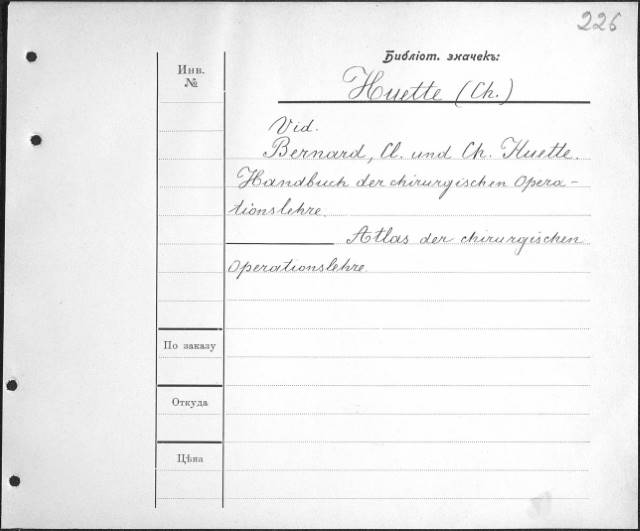 226
Библіот. значекъ:
Инв.
№
Huette (Ch.)
Vid.
Bernard, Cl. und Ch. Huette.
Handbuch der chirurgischen Opera-
tionslehre.
Atlas der chirurgischen
Operationslehre.
По заказу
Откуда
Цѣна